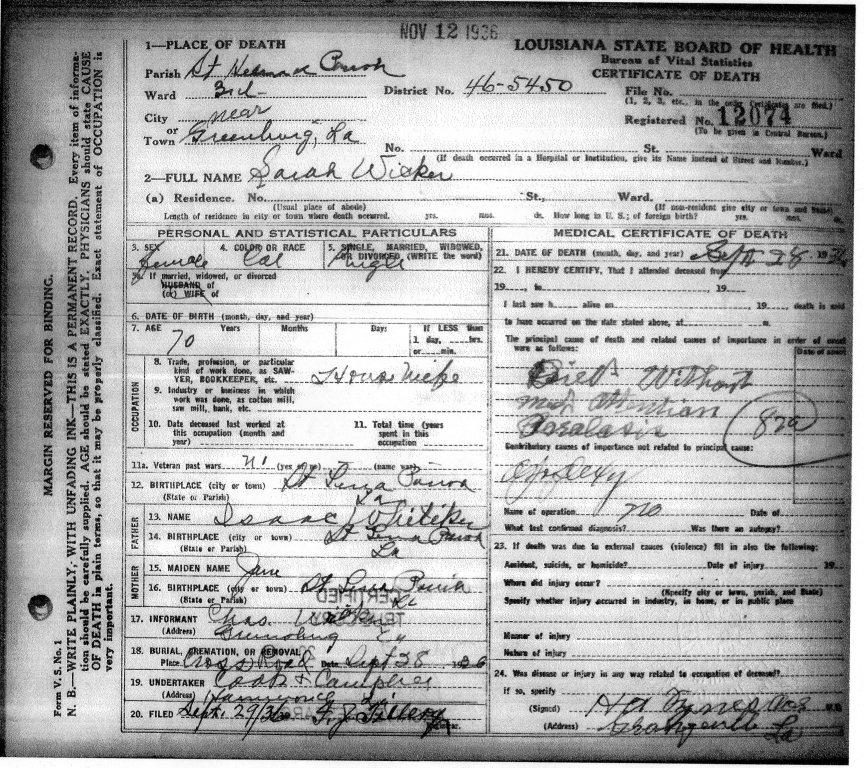 NOV 12 1936
LOUISIANA STATE BOARD OF HEALTH
Bureau of Vital Statistics
CERTIFICATE OF DEATH
1—PLACE OF DEATH
Parish St Parish
Ward 3rd District No. 46-5450
File No.
(1, 2, 3, etc., in the order Certificates are filed.)
City near
or
Town Greensburg, La
Registered No. 12074
(To be given in Central Bureau.)
No. St. Ward
(If death occurred in a Hospital or Institution, give its Name instead of Street and Number.)
2—FULL NAME Sarah Wicker
(a) Residence. No. St., Ward.
(Usual place of abode) (If non-resident give city or town and State)
Length of residence in city or town where death occurred. yrs. mos. ds. How long in U. S.; of foreign birth? yrs. mos. ds.
PERSONAL AND STATISTICAL PARTICULARS
3. SEX Female
4. COLOR OR RACE Col
5. SINGLE, MARRIED, WIDOWED, or DIVORCED (WRITE the word) Single
If married, widowed, or divorced
HUSBAND of
(or) WIFE of
6. DATE OF BIRTH (month, day, and year)
7. AGE 70 Years Months Days If LESS than
1 day, hrs.
or min.
OCCUPATION
8. Trade, profession, or particular
kind of work done, as SAW-
YER, BOOKKEEPER, etc. House
9. Industry or business in which
work was done, as cotton mill,
saw mill, bank, etc.
10. Date deceased last worked at
this occupation (month and
year)
11. Total time (years
spent in this
occupation
11a. Veteran past wars no (yes or no) (name war)
12. BIRTHPLACE (city or town) Parish
(State or Parish) La
FATHER
13. NAME Isaac
14. BIRTHPLACE (city or town) Parish
(State or Parish) La
MOTHER
15. MAIDEN NAME Jane
16. BIRTHPLACE (city or town) Parish
(State or Parish) La
17. INFORMANT Chas.
(Address) Greensburg
18. BURIAL, CREMATION, OR REMOVAL
Place Cross Road Date Sept 28 1936
19. UNDERTAKER Cook &
(Address) Hammond
20. FILED Sept. 29/36
MEDICAL CERTIFICATE OF DEATH
21. DATE OF DEATH (month, day, and year) Sept 28 1936
22. I HEREBY CERTIFY, That I attended deceased from
19 , to , 19
I last saw h alive on , 19 death is said
to have occurred on the date stated above, at m.
The principal cause of death and related causes of importance in order of onset
were as follows:
Date of onset
Died Without
med Attention
Paralasis
82a
Contributory causes of importance not related to principal cause:
Name of operation no Date of
What test confirmed diagnosis? Was there an autopsy?
23. If death was due to external causes (violence) fill in also the following:
Accident, suicide, or homicide? Date of injury 19
Where did injury occur?
(Specify city or town, parish, and State)
Specify whether injury occurred in industry, in home, or in public place
Manner of injury
Nature of injury
24. Was disease or injury in any way related to occupation of deceased?
If so, specify
(Signed) M.D.
(Address) La
MARGIN RESERVED FOR BINDING.
N. B.—WRITE PLAINLY, WITH UNFADING INK—THIS IS A PERMANENT RECORD. Every item of informa-
tion should be carefully supplied. AGE should be stated EXACTLY. PHYSICIANS should state CAUSE
OF DEATH in plain terms, so that it may be properly classified. Exact statement of OCCUPATION is
very important.
Form V. S. No. 1